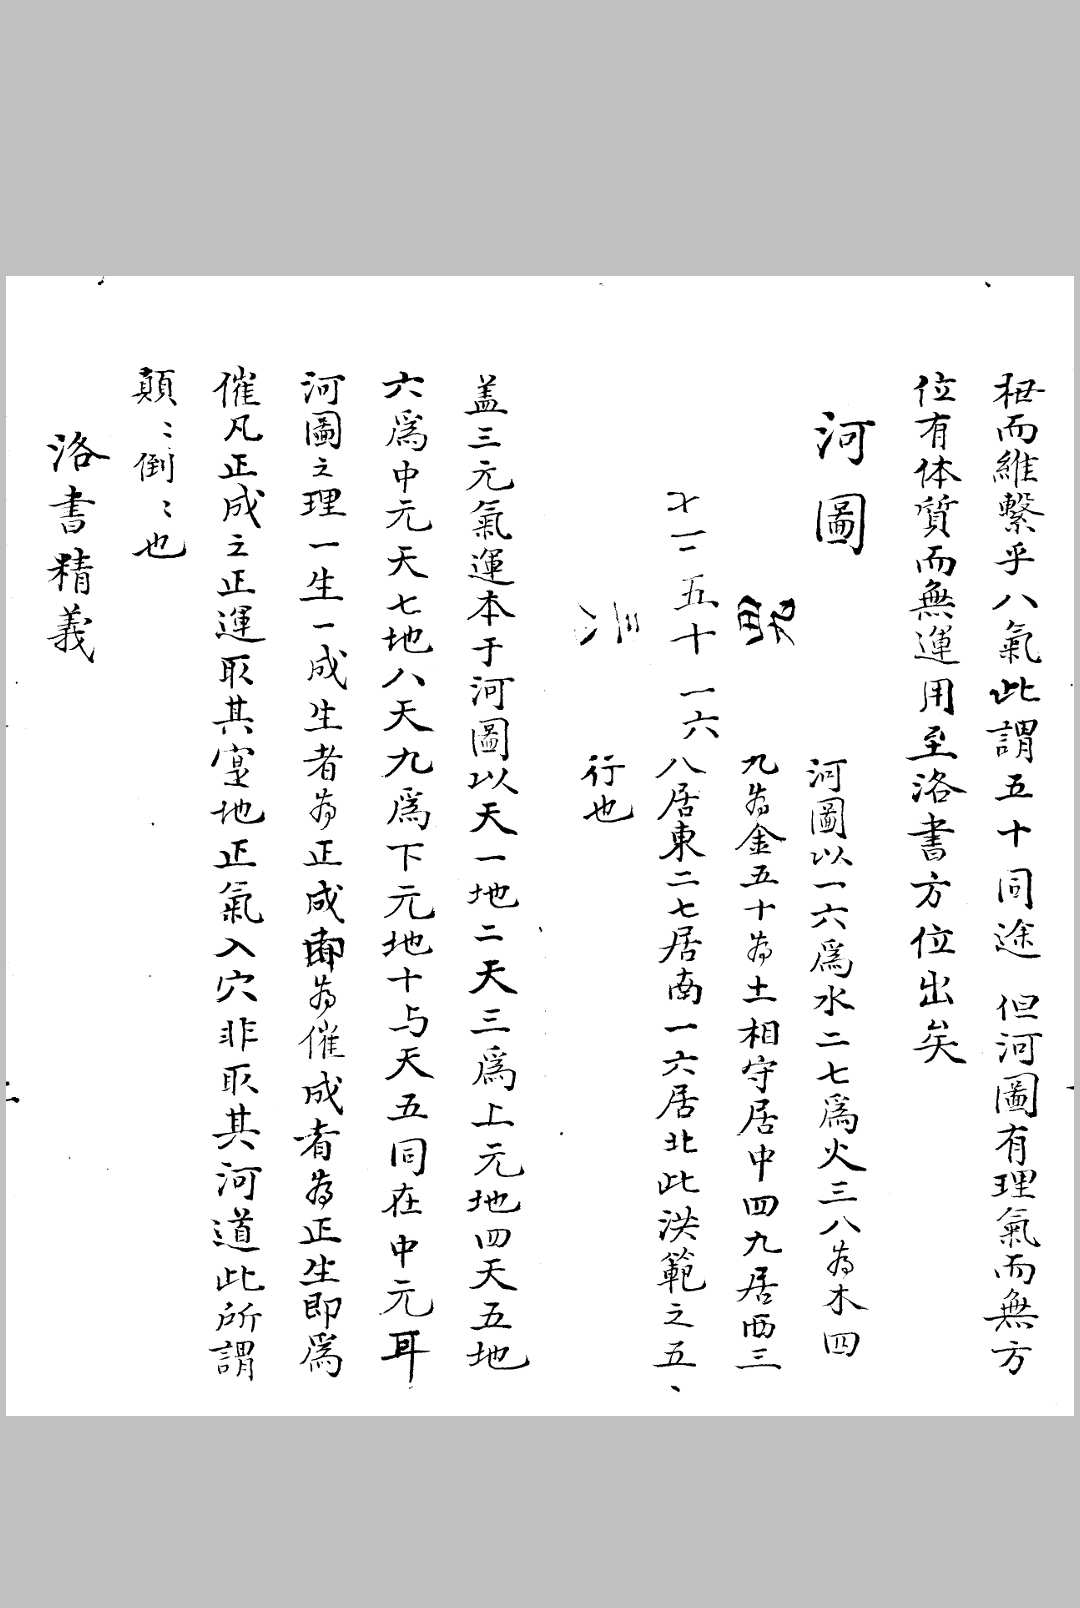 而維繫乎八氣此謂五十同途 但河圖有理氣而無方
位有体质而無運用至洛書方位出矣
河圖
四九
二七 五十 一六
三八
河圖以一六爲水二七爲火三八為木四
九為金五十為土相守居中四九居西三
八居東二七居南一六居北此洪範之五、
行也
盖三元氣運本于河圖以天一地二天三爲上元地四天五地
六爲中元天七地八天九爲下元地十与天五同在中元耳
河圖之理一生一成生者为正成即为催成者为正生即爲
催凡正成之正運取其寔地正氣入穴非取其河道此所謂
顛〻倒〻也
洛書精義